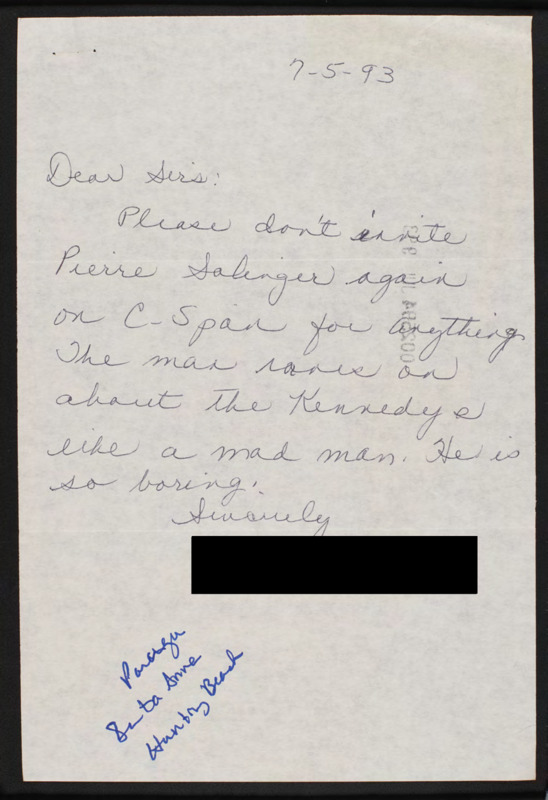 7-5-93
Dear Sirs:
Please don't invite
Pierre Salinger again
on C-Span for anything
The man raves on
about the Kennedys
like a mad man. He is
so boring.
Sincerely
Santa Anna
Hunting Beach